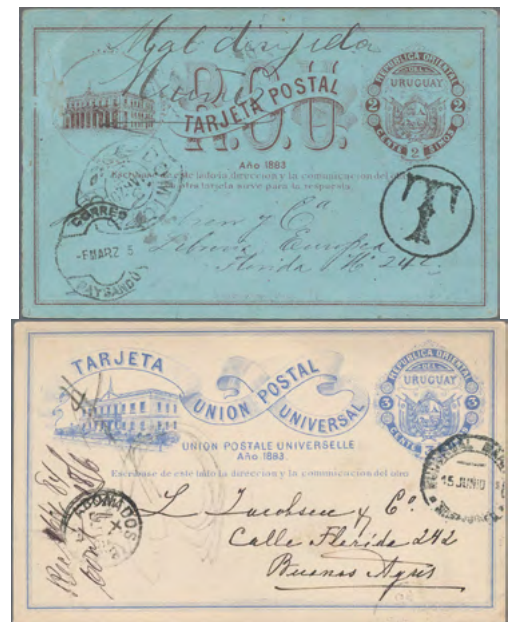 Mal dirijida
R.O.U.
TARJETA POSTAL
REPUBLICA ORIENTAL
DEL
URUGUAY
2 2
CENTE 2 SIMOS
Año 1883
Escribase de este lado la direccion y la comunicacion del otro
otra tarjeta sirve para la respuesta.
T
CORREO
MARZ 5
PAYSANDÚ
y Cª
Libreria Europea
Florida Nº 242
TARJETA
UNION POSTAL UNIVERSAL
REPUBLICA ORIENTAL
DEL
URUGUAY
3 3
CENTE
UNION POSTALE UNIVERSELLE
Año 1883.
Escribase de este lado la direccion y la comunicacion del otro
15 JUNIO
ABONADOS
L Jacobsen y Cº.
Calle Florida 242
Buenos Ayres